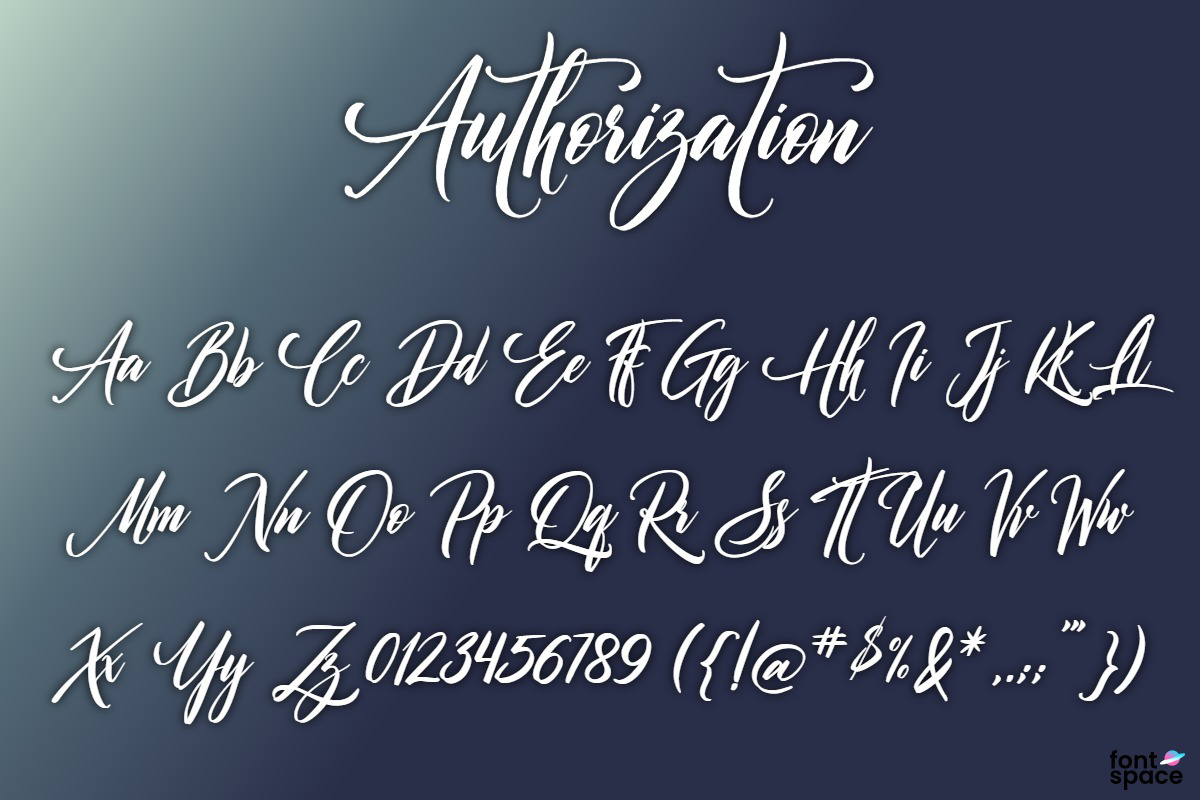 Authorization
Aa Bb Cc Dd Ee Ff Gg Hh Ii Jj Kk Ll
Mm Nn Oo Pp Qq Rr Ss Tt Uu Vv Ww
Xx Yy Zz 0123456789 ({!@#$%&*,.;:'"})
font
space